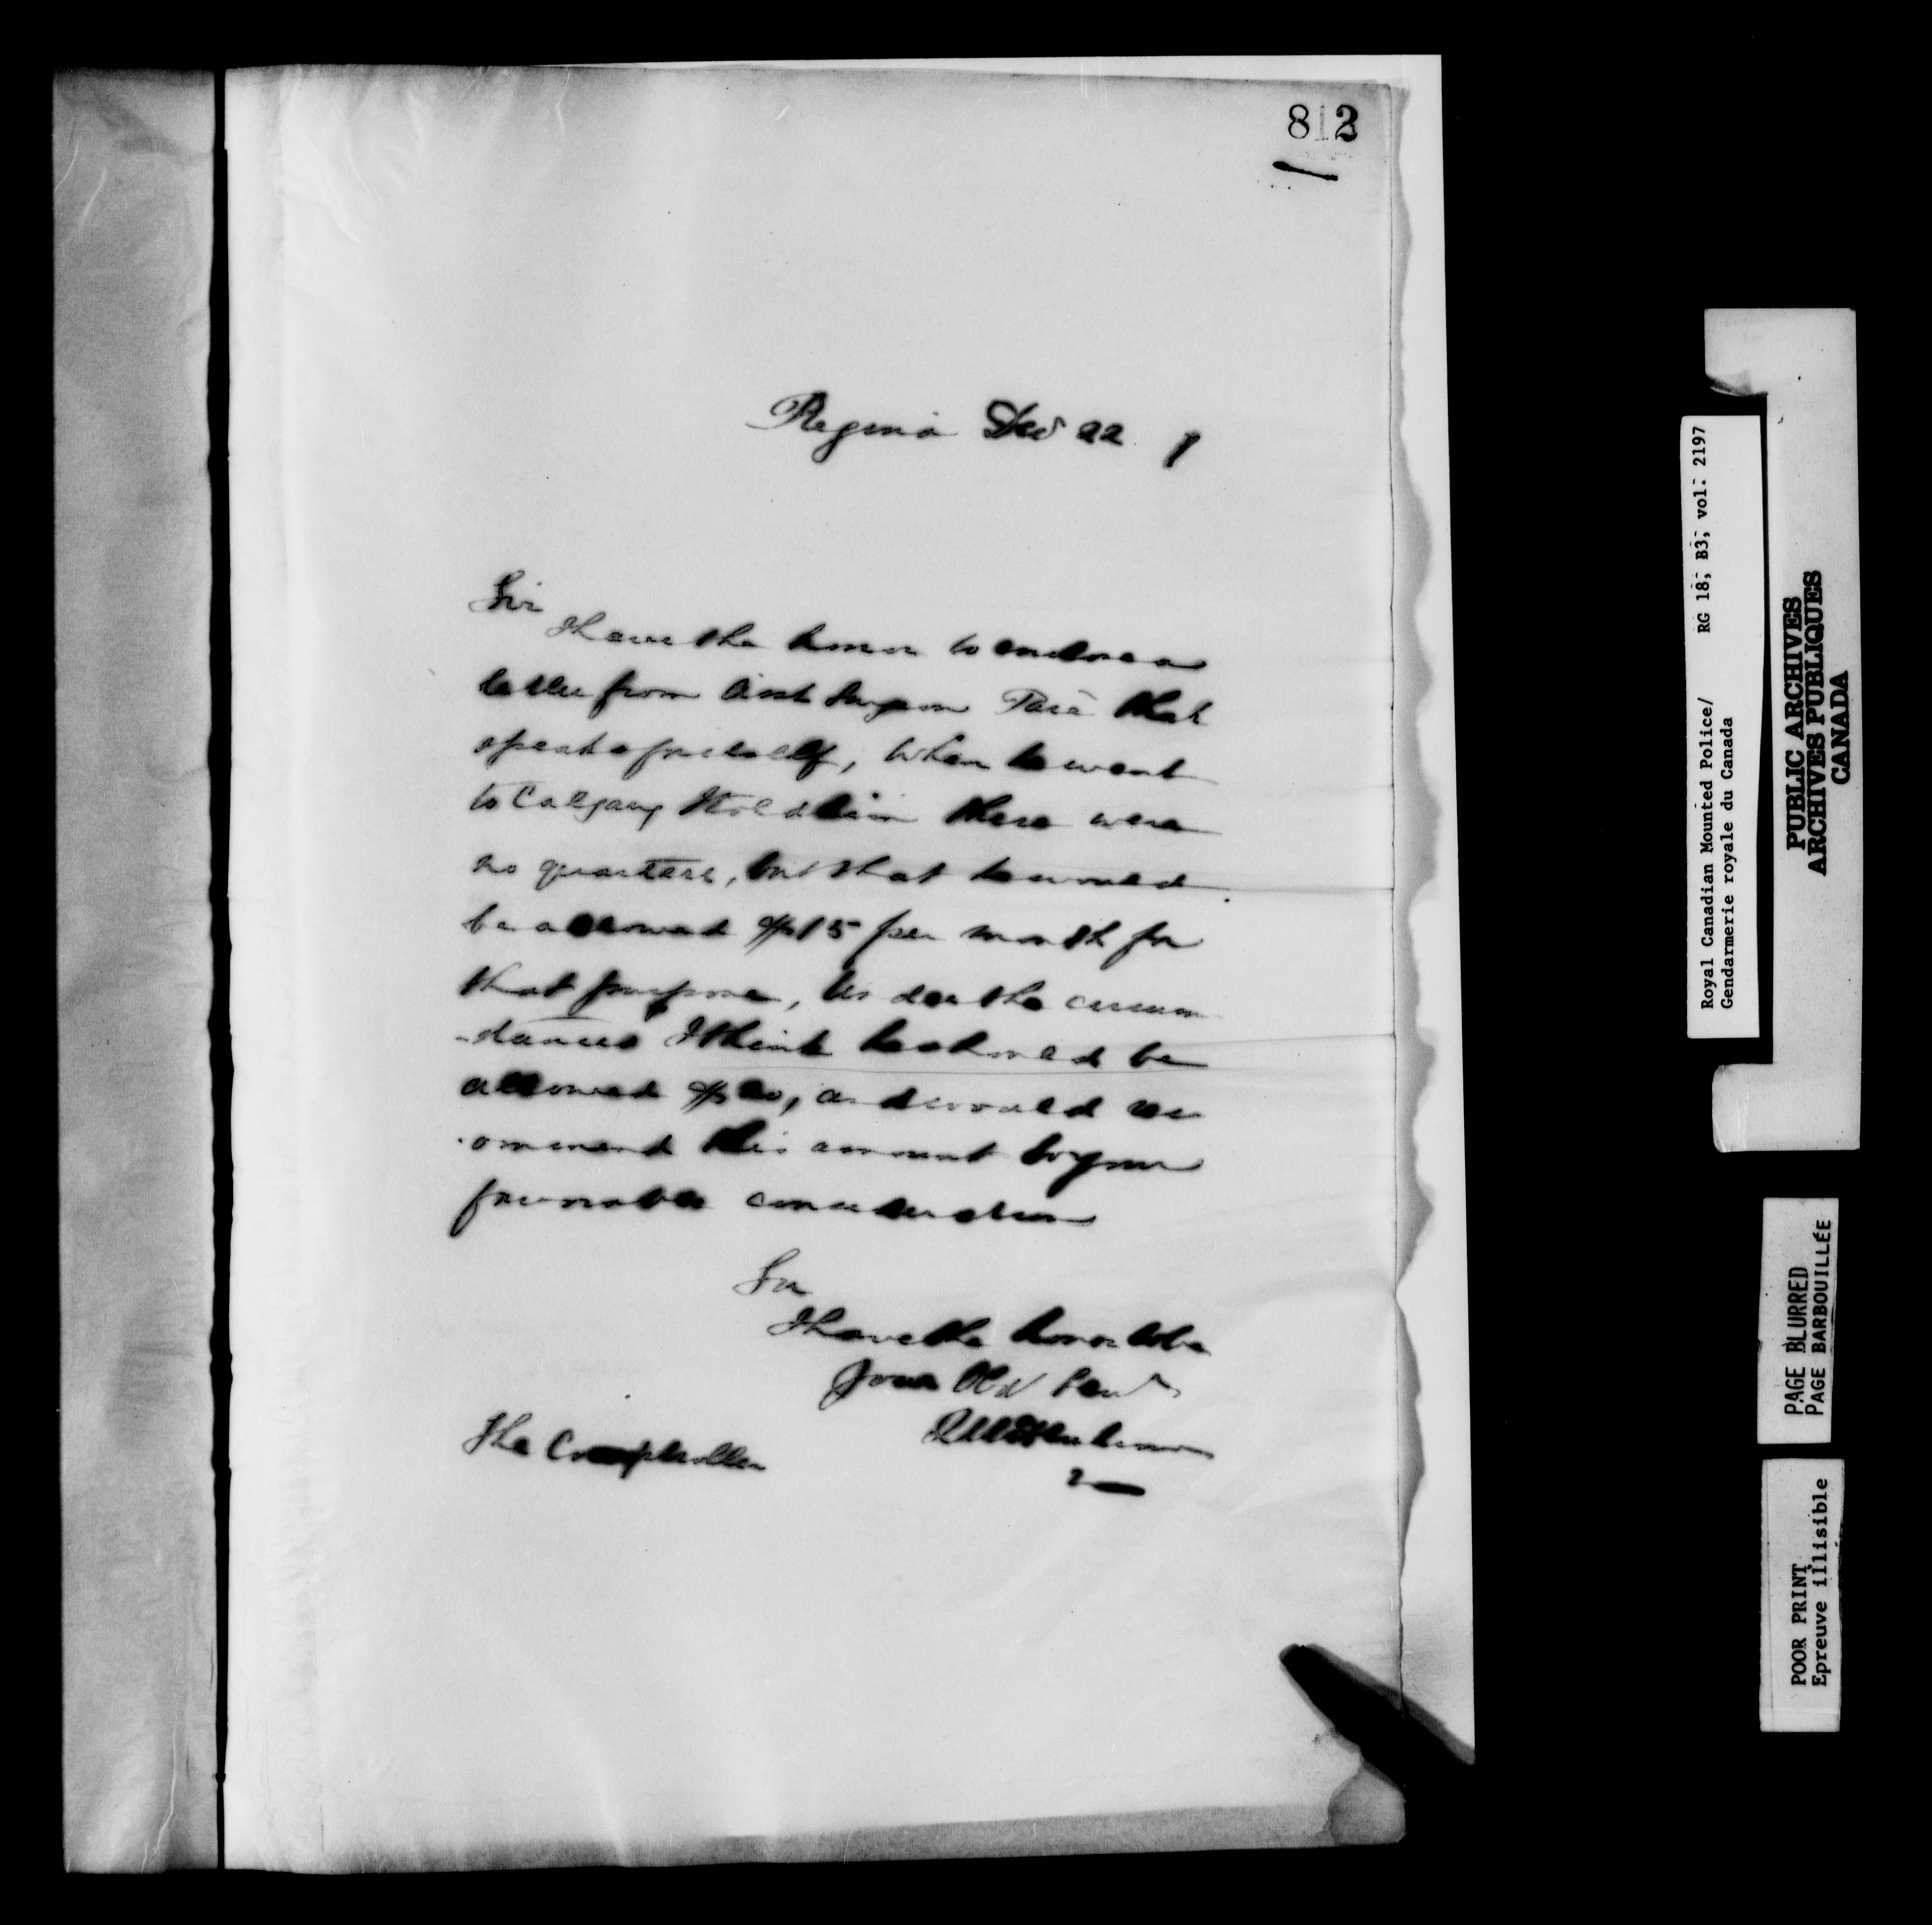 812
Regina Dec 22 1
Sir
I have the honor to enclose a
letter from Asst Surgeon Paré that
speaks for itself, When he went
to Calgary I told him there were
no quarters, but that he would
be allowed $15 per month for
that purpose, Under the circum
-stances I think he should be
allowed $20, and would rec
-ommend this amount to your
favorable consideration
Sir
I have the honor to be
Your Obd Serv
The Comptroller
Royal Canadian Mounted Police/ RG 18, B3, vol. 2197
Gendarmerie royale du Canada
PUBLIC ARCHIVES
ARCHIVES PUBLIQUES
CANADA
PAGE BLURRED
PAGE BARBOUILLÉE
POOR PRINT
Epreuve illisible